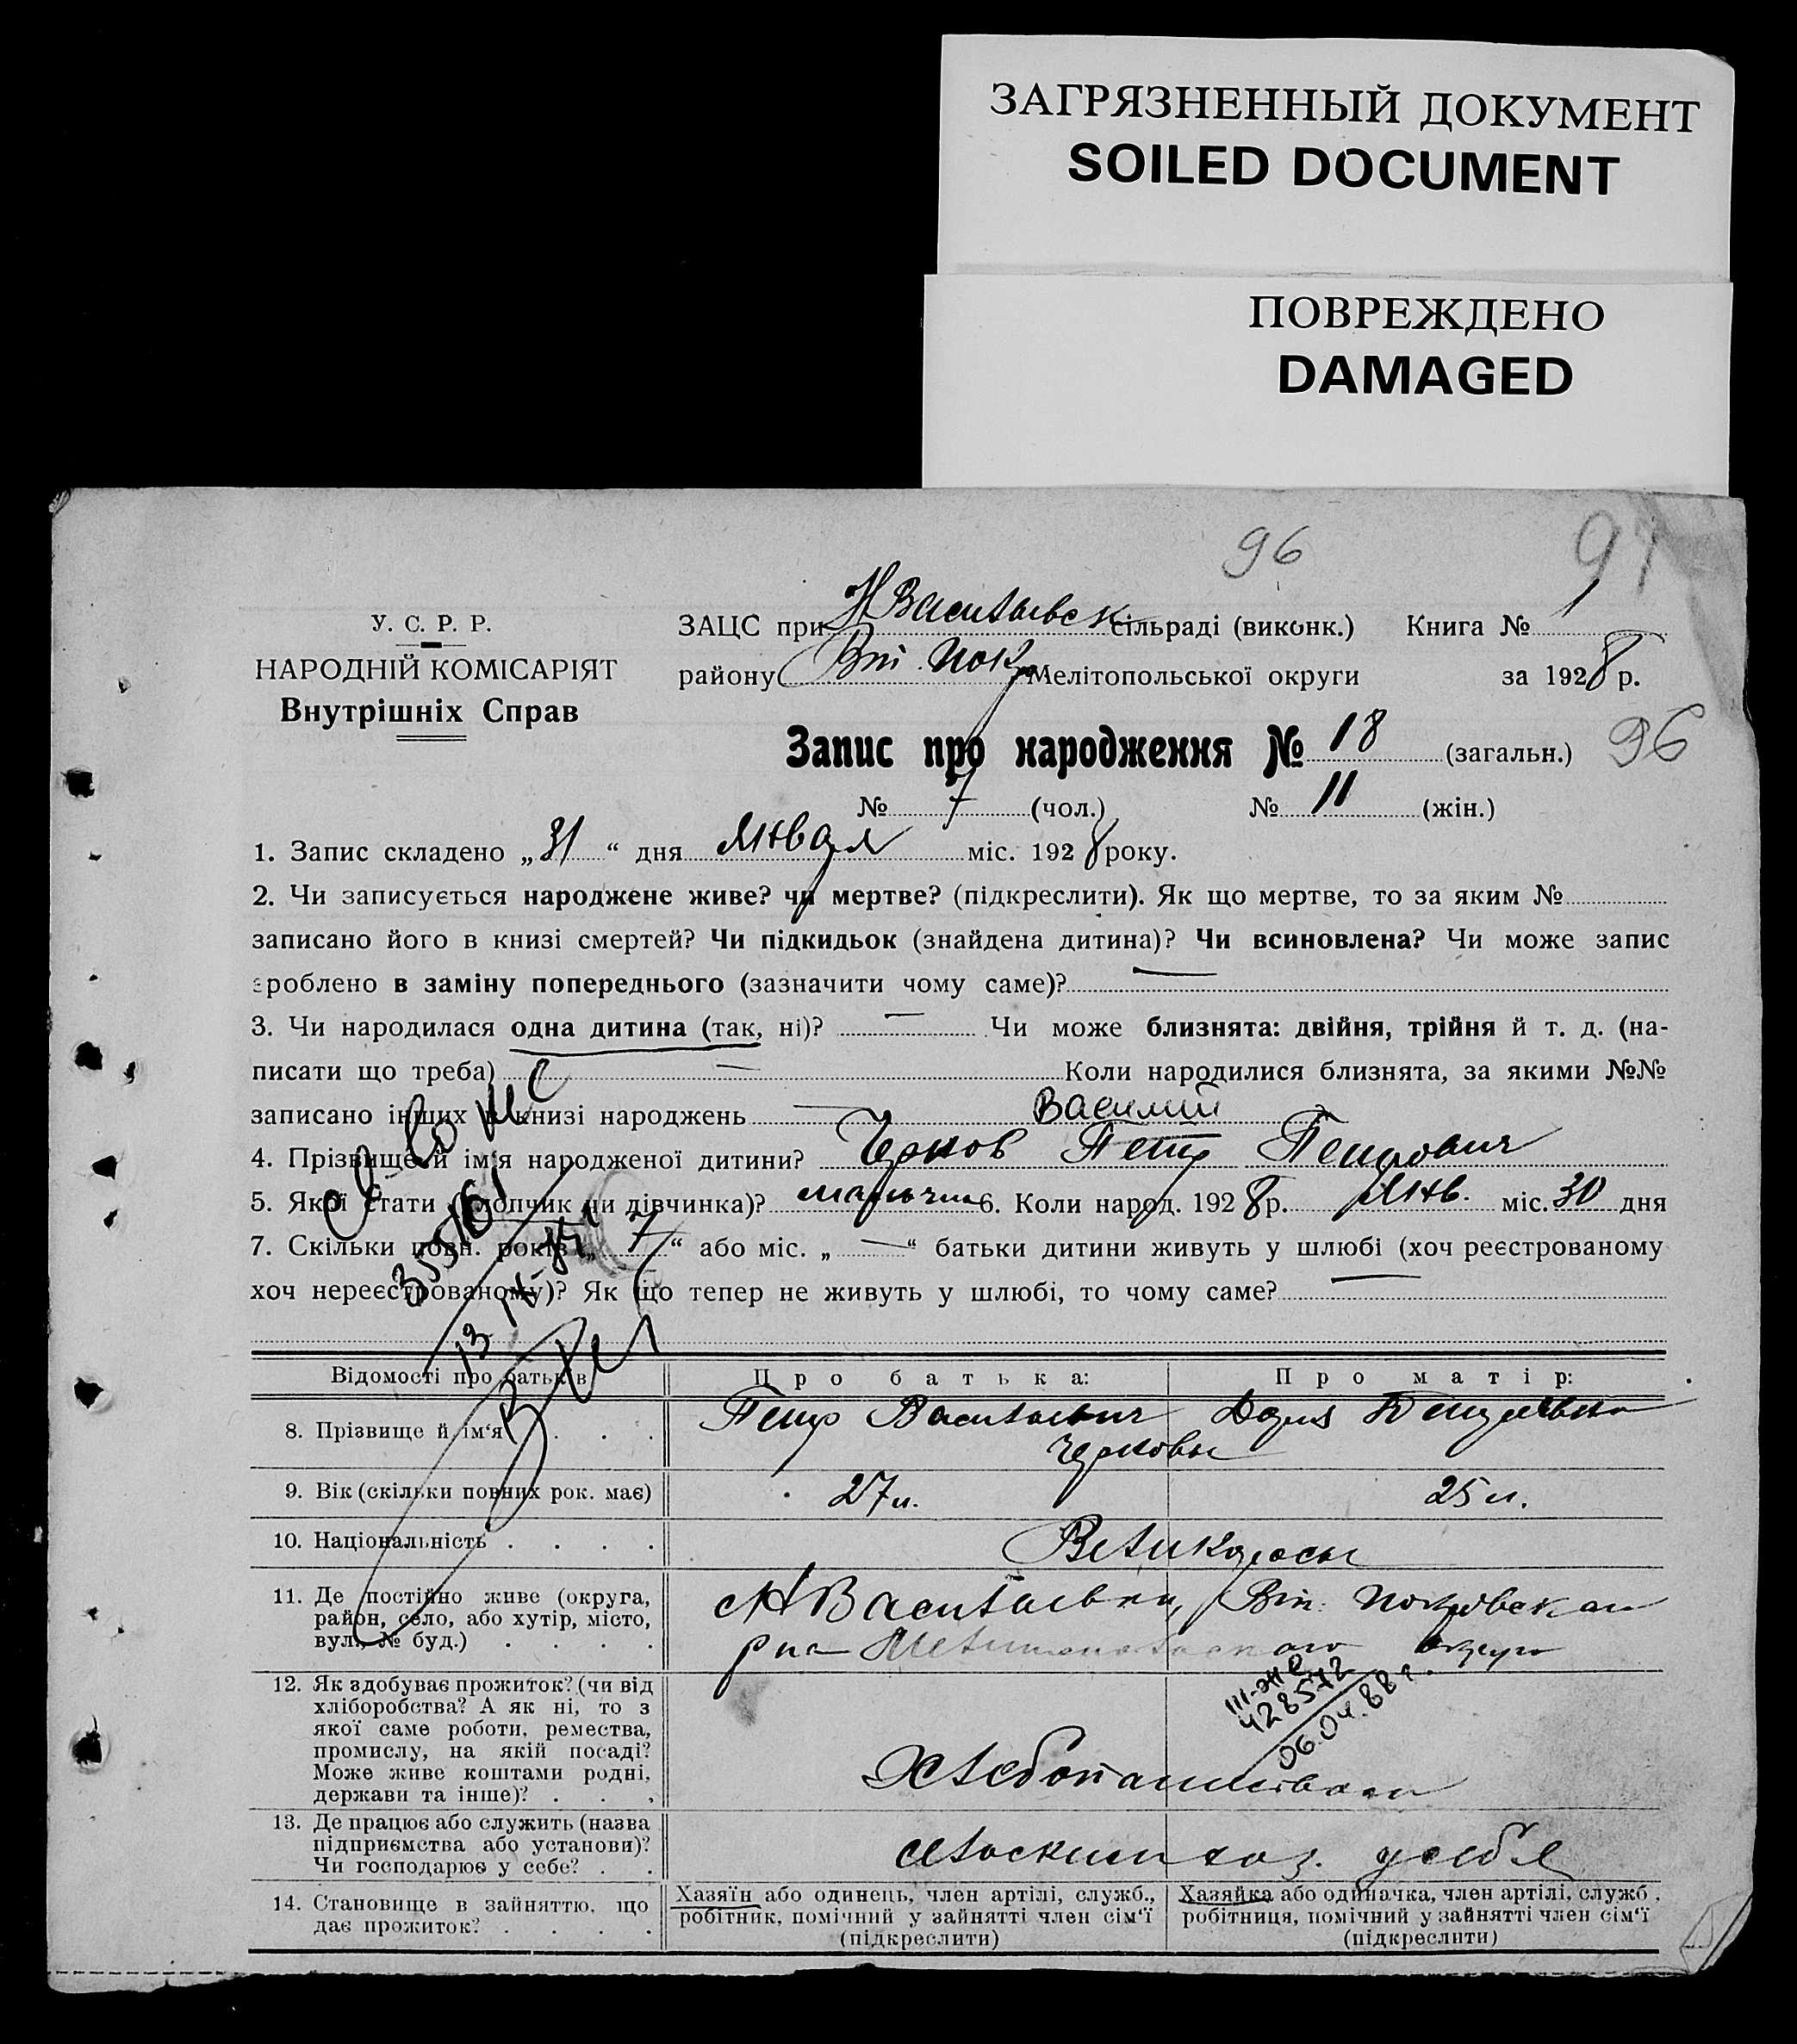 ЗАГРЯЗНЕННЫЙ ДОКУМЕНТ
SOILED DOCUMENT
ПОВРЕЖДЕНО
DAMAGED
96 97
У. С. Р. Р.
НАРОДНІЙ КОМІСАРІЯТ
Внутрішніх Справ
ЗАЦС при Н Васильевск сільраді (виконк.) Книга № 1
району Вт. Покр Мелітопольської округи за 1928 р.
Запис про народження № 18 (загальн.) 96
№ 7 (чол.) № 11 (жін.)
1. Запис складено „31“ дня Января міс. 1928 року.
2. Чи записується народжене живе? чи мертве? (підкреслити). Як що мертве, то за яким №
записано його в книзі смертей? Чи підкидьок (знайдена дитина)? Чи всиновлена? Чи може запис
зроблено в заміну попереднього (зазначити чому саме)? —
3. Чи народилася одна дитина (так, ні)? — Чи може близнята: двійня, трійня й т. д. (на-
писати що треба) — Коли народилися близнята, за якими №№
записано інших в книзі народжень —
Василий
4. Прізвище й ім'я народженої дитини? Чернов Петр Петрович
5. Якої стати (хлопчик чи дівчинка)? мальчик 6. Коли народ. 1928 р. Янв. міс. 30 дня
7. Скільки повн. років „7“ або міс. „—“ батьки дитини живуть у шлюбі (хоч реєстрованому
хоч нереєстрованому)? Як що тепер не живуть у шлюбі, то чому саме? —
355161
13 IV-85
Відомості про батьків Про батька: Про матір:
8. Прізвище й ім'я . . . Петр Васильевич Дария
Черновы
9. Вік (скільки повних рок. має) 27 л. 25 л.
10. Національність . . . . Великороссы
11. Де постійно живе (округа,
район, село, або хутір, місто,
вул. № буд.) . . . .
Н Васильевки, Вт. Покровского
р на Мелитопольского округа
III-ЖС
428572
06.04.88 г.
12. Як здобуває прожиток? (чи від
хліборобства? А як ні, то з
якої саме роботи, ремества,
промислу, на якій посаді?
Може живе коштами родні,
держави та інше)? . . .
Хлебопашеством
13. Де працює або служить (назва
підприємства або установи)?
Чи господарює у себе? . .
хоз. у себя
14. Становище в зайняттю, що
дає прожиток? . . . .
Хазяїн або одинець, член артілі, служб.,
робітник, помічний у зайнятті член сім'ї
(підкреслити)
Хазяйка або одиначка, член артілі, служб.
робітниця, помічний у зайнятті член сім'ї
(підкреслити)